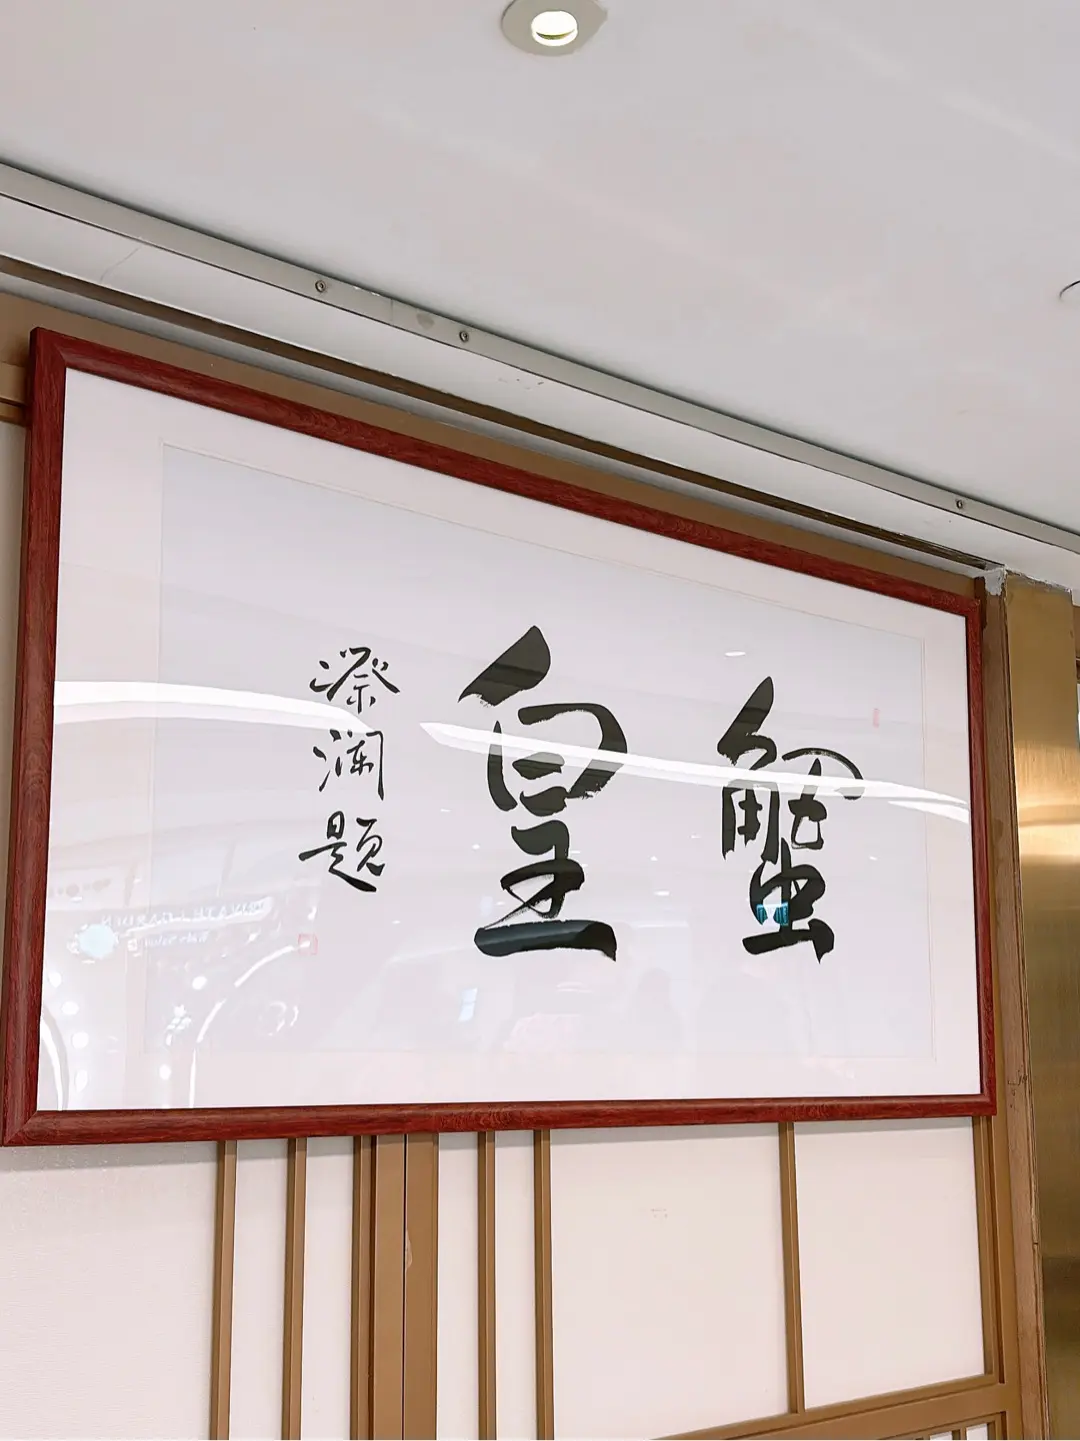 蟹皇
澄澜题